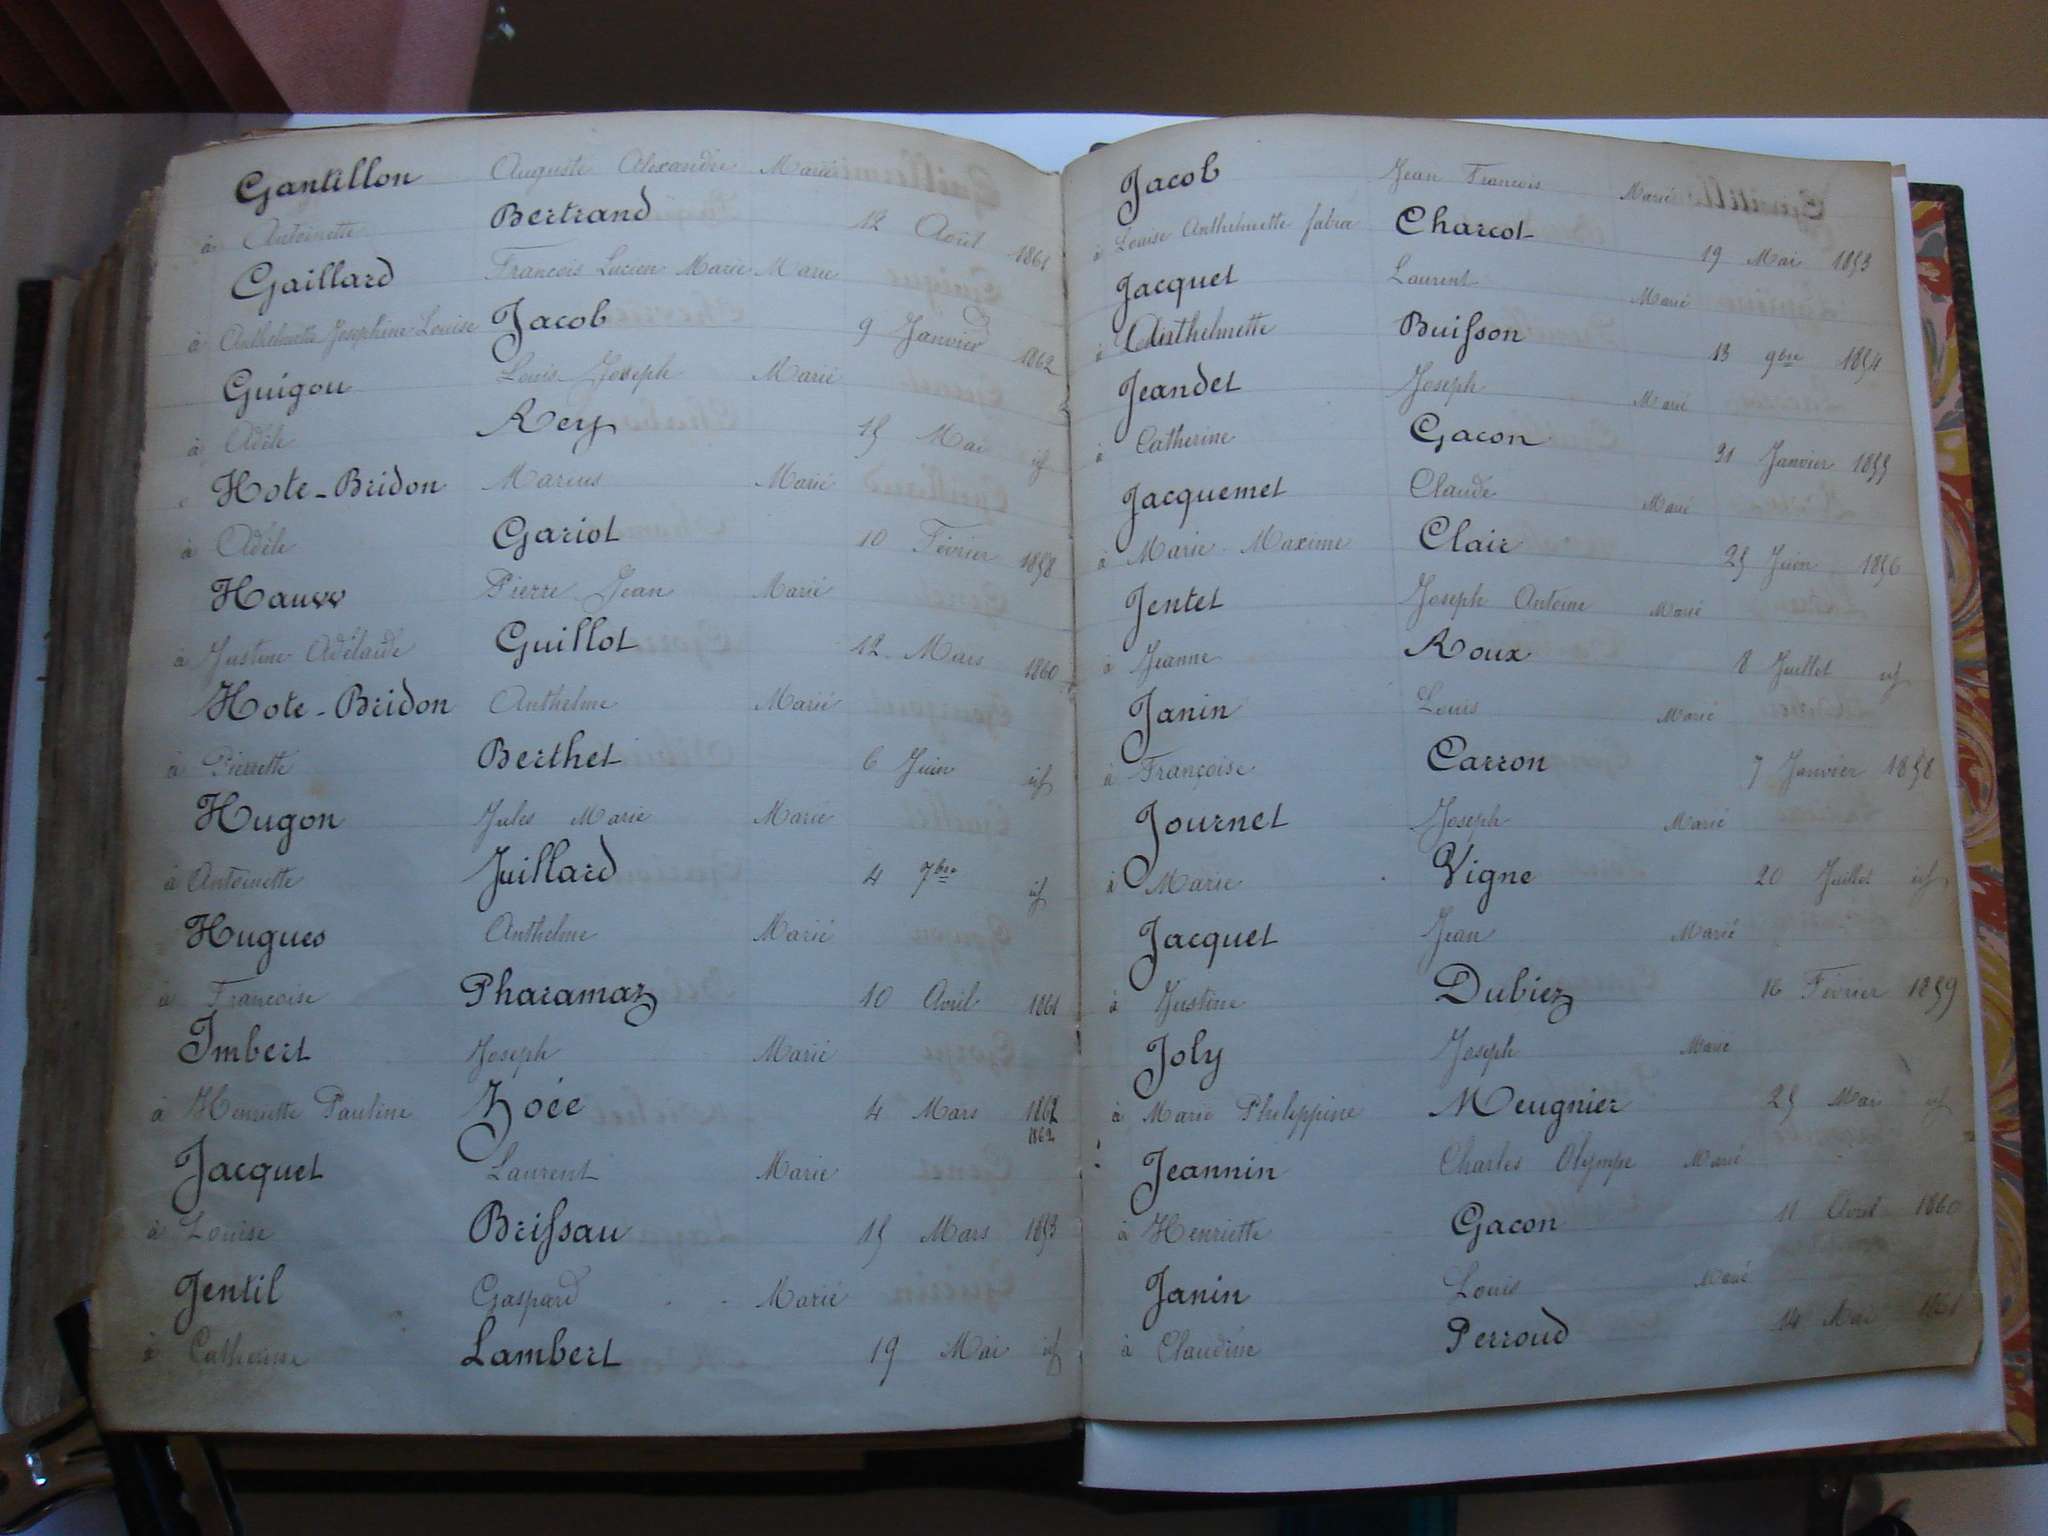 Gantillon Auguste Alexandre Marié
à Antoinette Bertrand 12 Août 1861
Gaillard François Lucien Marie Marié
à Anthelmette Josephine Louise Jacob 9 Janvier 1862
Guigou Louis Joseph Marié
à Adèle Rey 15 Mai id
Hote-Bridon Marius Marié
à Adèle Gariot 10 Février 1858
Hauw Pierre Jean Marié
à Justine Adélaide Guillot 12 Mars 1860
Hote-Bridon Anthelme Marié
à Pierrette Berthet 6 Juin id
Hugon Jules Marie Marié
à Antoinette Juillard 4 7bre id
Hugues Anthelme Marié
à Françoise Pharamaz 10 Avril 1861
Imbert Joseph Marié
à Henriette Pauline Zoée 4 Mars 1862
1862
Jacquet Laurent Marié
à Louise Brissau 15 Mars 1853
Jentil Gaspard Marié
à Catherine Lambert 19 Mai id
Jacob Jean François Marié
à Louise Anthelmette Charcot 19 Mai 1853
Jacquet Laurent Marié
à Anthelmette Buisson 13 9bre 1854
Jeandet Joseph Marié
à Catherine Gacon 31 Janvier 1855
Jacquemet Claude Marié
à Marie Maxime Clair 25 Juin 1856
Jentet Joseph Antoine Marié
à Jeanne Roux 8 Juillet id
Janin Louis Marié
à Françoise Carron 7 Janvier 1858
Journet Joseph Marié
à Marie Vigne 20 Juillet id
Jacquet Jean Marié
à Justine Dubiez 16 Février 1859
Joly Joseph Marié
à Marie Philippine Meugnier 25 Mai id
Jeannin Charles Olympe Marié
à Henriette Gacon 11 Avril 1860
Janin Louis Marié
à Claudine Perroud 14 Mai 1861